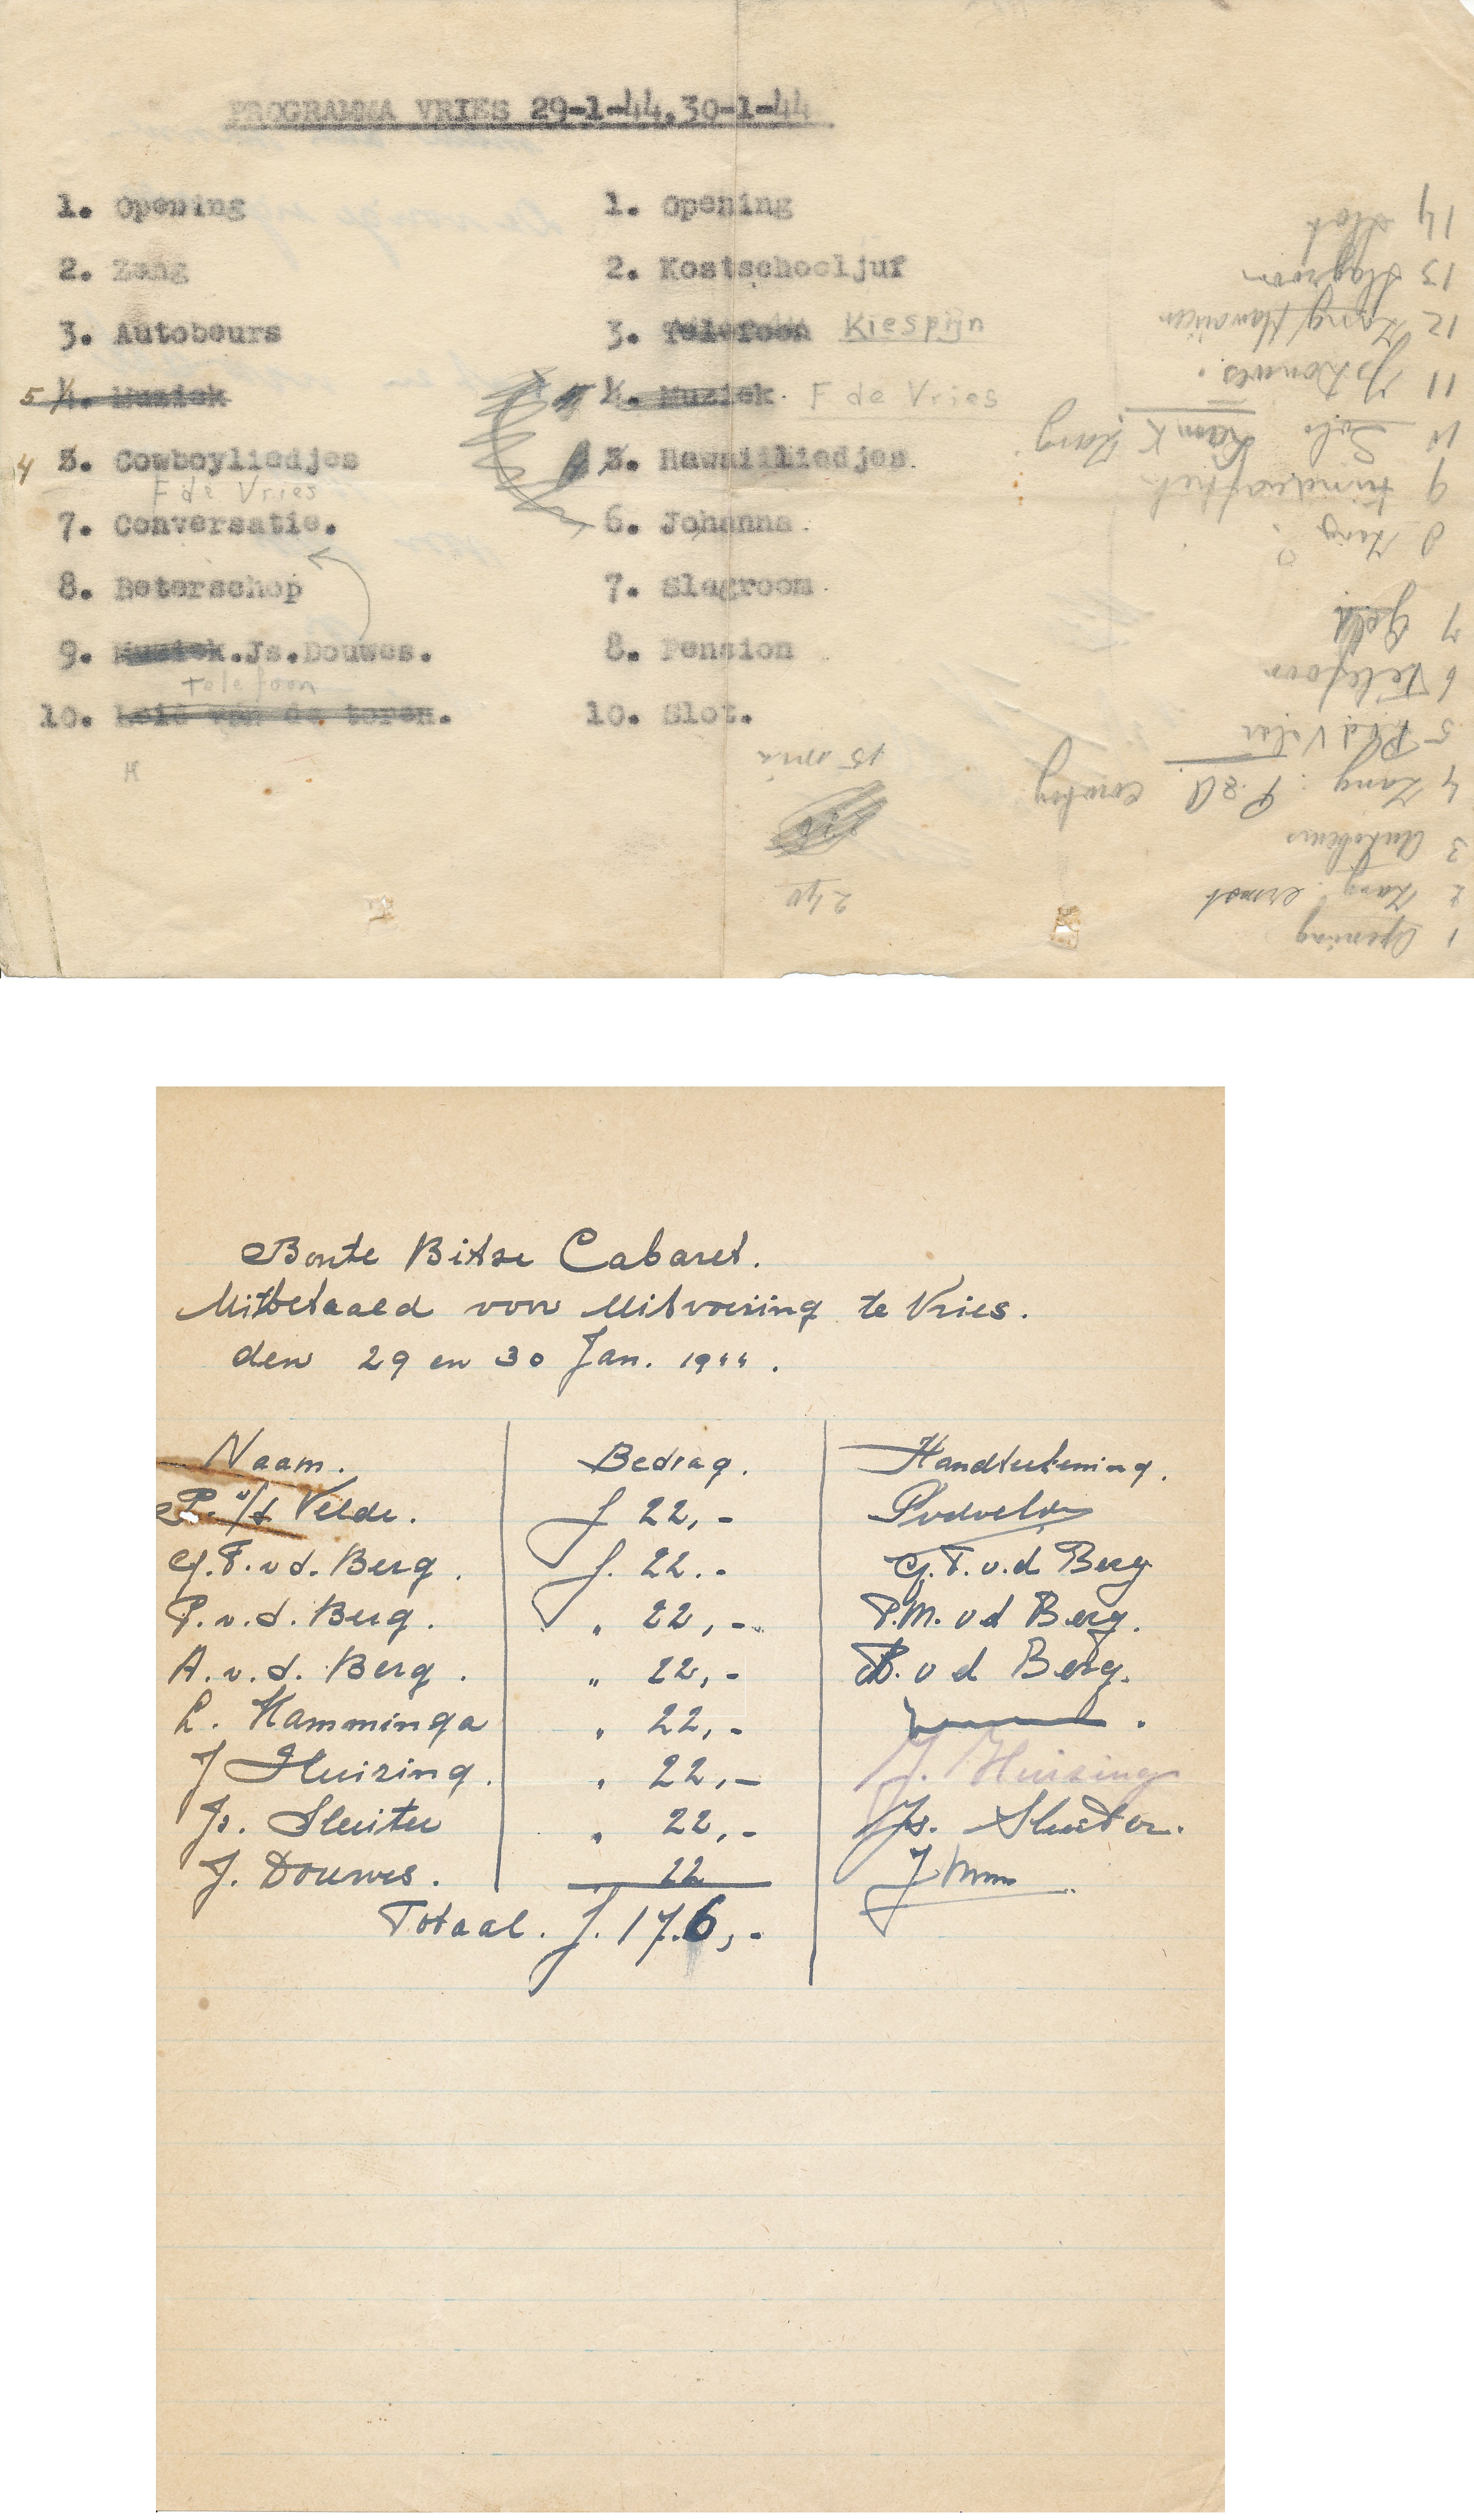 PROGRAMMA VRIES 29-1-44.30-1-44
1. Opening
2. Zang
3. Autobeurs
5 4. Muziek
4 5. Cowboyliedjes
F de Vries
7. Conversatie.
8. Beterschop
9. Muziek.Js.Douwes.
Telefoon
10. Leid van de toren.
1. Opening
2. Kostschooljuf
3. Telefoon Kiespijn
4. Muziek. F de Vries
5. Hawaiiliedjes.
6. Johanna.
7. Slagroom.
8. Pension
10. Slot.
15 min
240
1 Opening
2 Zang: ernst
3 Autobeurs
4 Zang: P&A cowboy
5 P.v.d Velde
6 Telefoon
7 Geld
8 Zang
9
10 Solo Zang
11 Js Douwes.
12 Zang Hawaiien
13 Slagroom
14 Slot
Bonte Bitse Cabaret.
Uitbetaald voor Uitvoering te Vries.
den 29 en 30 Jan. 1944.
Naam. Bedrag. Handteekening.
P. v/d Velde. f 22,- Pvdvelde
G.F. v d. Berg. f. 22.- G.F. v.d Berg
P. v. d. Berg. " 22,- P.M. vd Berg.
A. v. d. Berg. " 22,- A. v d Berg.
L. Hamminga " 22,-
J Huizing. " 22,- J. Huizing
Js. Sluiter " 22,- Js. Sluiter.
J. Douwes. 22
Totaal. f. 176,-